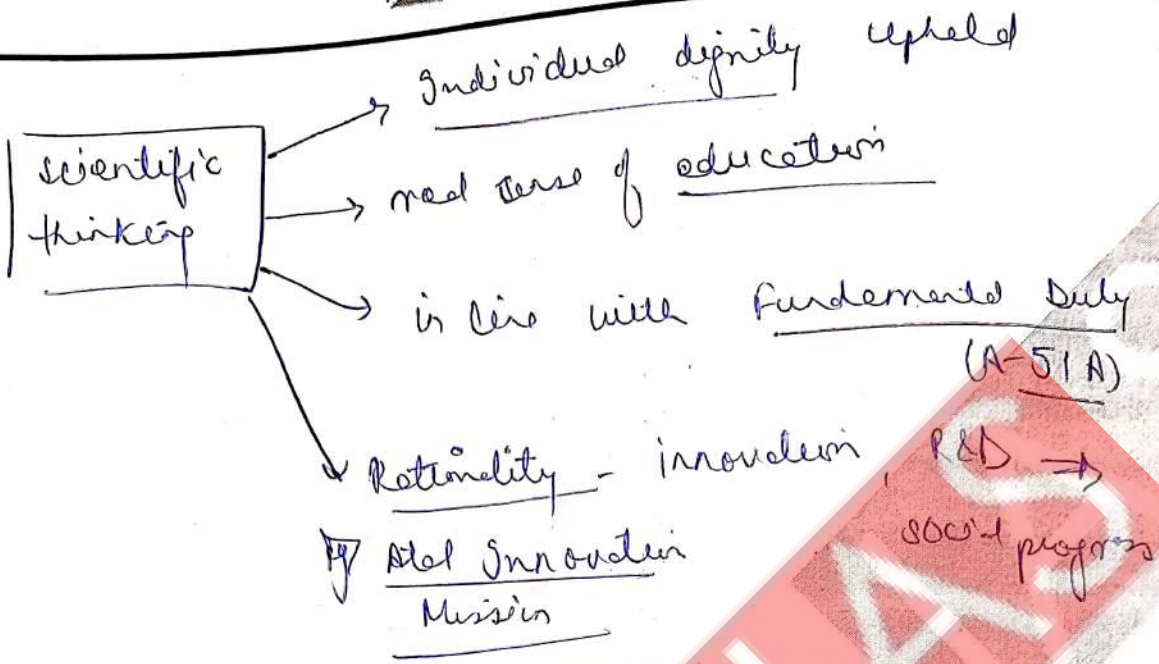 scientific
thinking
Individual dignity upheld
real sense of education
in line with Fundamental Duty
(A-51A)
Rationality - innovation, R&D →
social progress
eg Atal Innovation
Mission
IAS